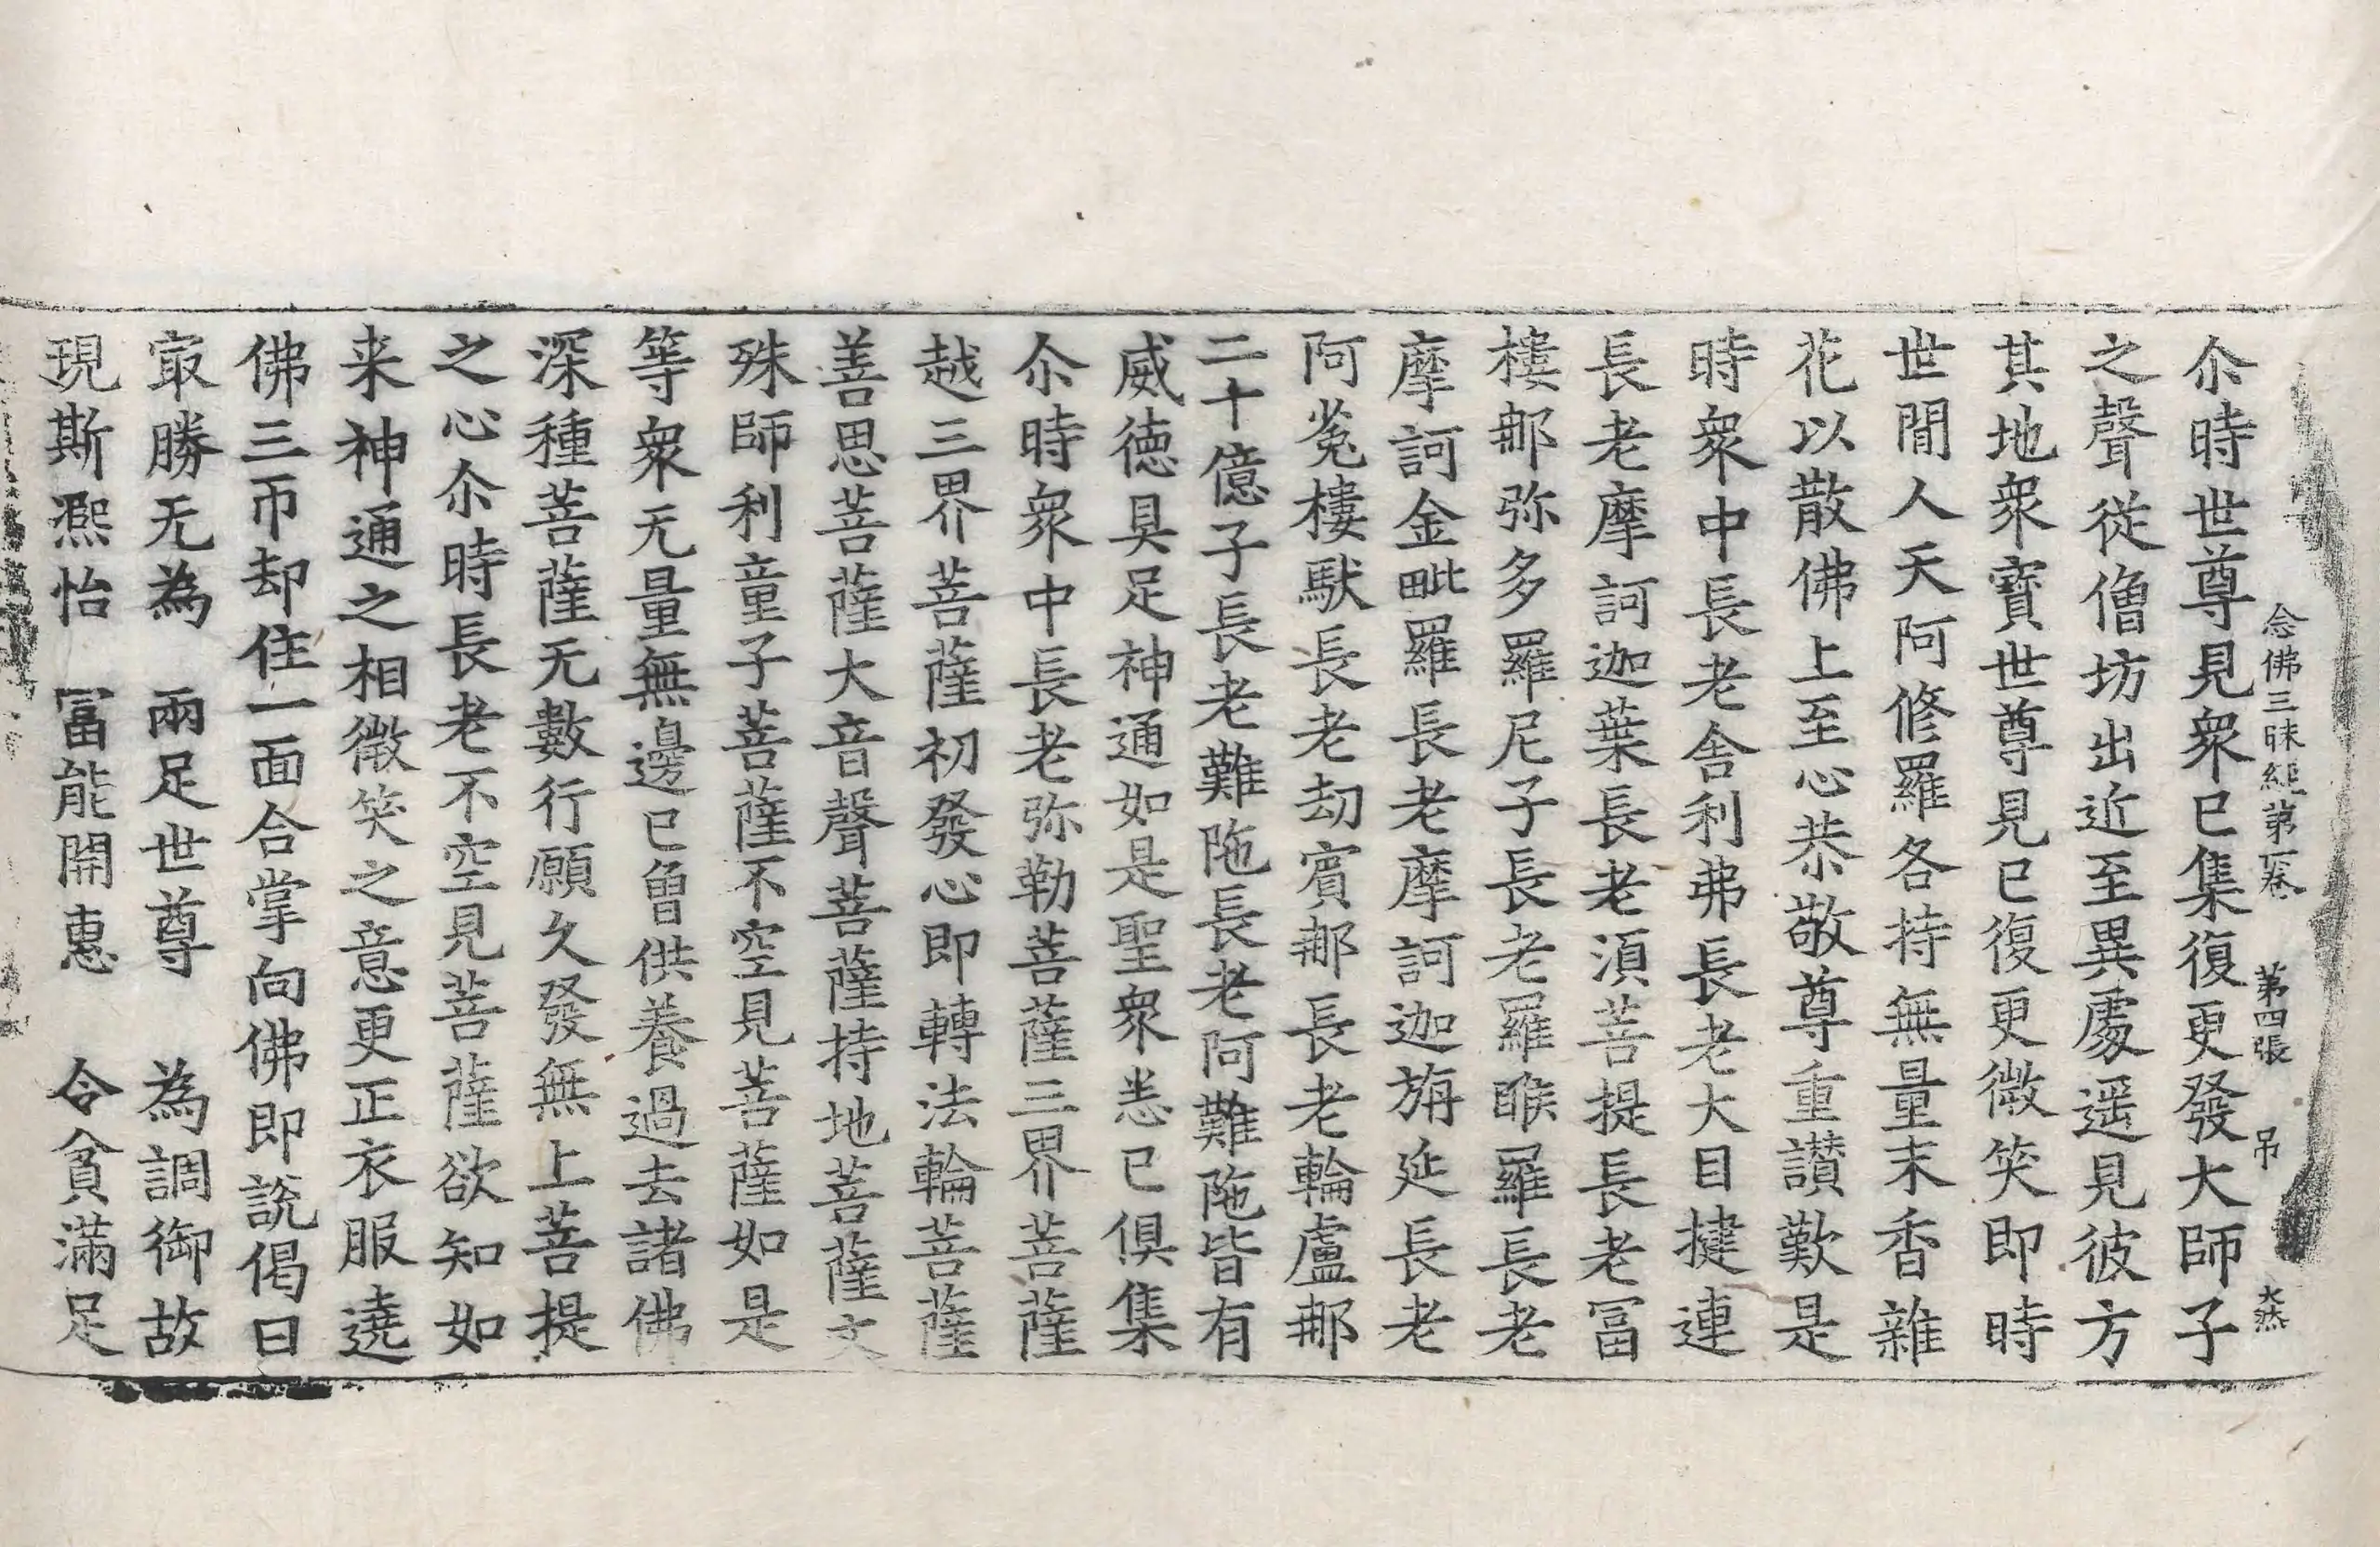 念佛三昧經第一卷 第四張 吊 大然
尒時世尊見衆已集復更發大師子
之聲從僧坊出近至異處遥見彼方
其地衆寶世尊見已復更微笑即時
世間人天阿修羅各持無量末香雜
花以散佛上至心恭敬尊重讃歎是
時衆中長老舍利弗長老大目揵連
長老摩訶迦葉長老湏菩提長老冨
樓那弥多羅尼子長老羅睺羅長老
摩訶金毗羅長老摩訶迦旃延長老
阿㝹樓馱長老劫賓那長老輪盧那
二十億子長老難陁長老阿難陁皆有
威德具足神通如是聖衆悉已俱集
尒時衆中長老弥勒菩薩三界菩薩
越三界菩薩初發心即轉法輪菩薩
善思菩薩大音聲菩薩持地菩薩文
殊師利童子菩薩不空見菩薩如是
等衆无量無邊已曾供養過去諸佛
深種菩薩无數行願久發無上菩提
之心尒時長老不空見菩薩欲知如
来神通之相微笑之意更正衣服遶
佛三帀却住一面合掌向佛即説偈曰
冣勝无為 兩足世尊 為調御故
現斯熈怡 冨能開惠 令貧滿足